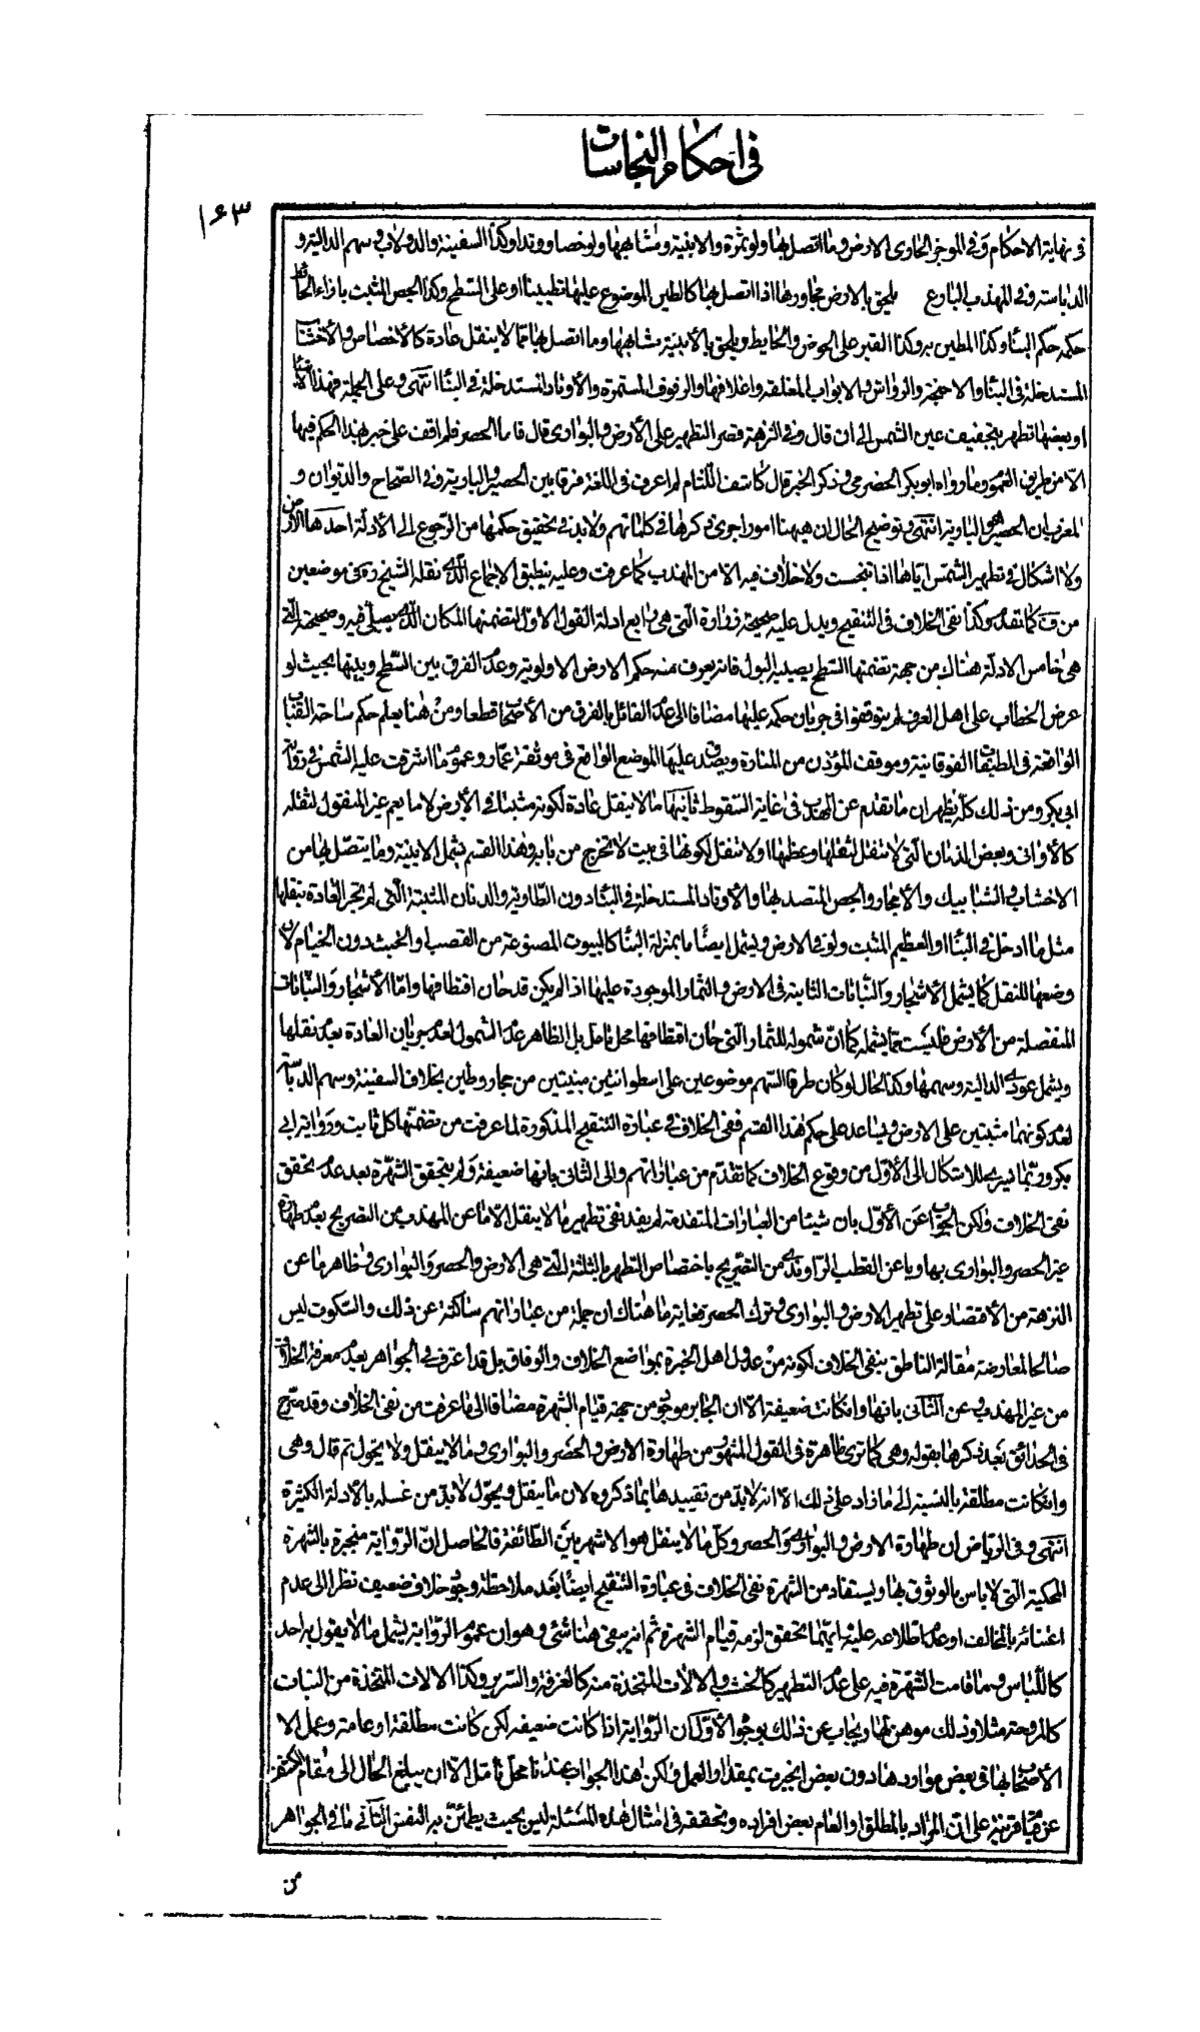 في احكام النجاسات
١٦٣
في نهاية الاحكام وفي الموجز الحاوي الارض وما اتصل بها ولو ثمرة والابنية ومشابهها ولو خصا ووتدا وكذا السفينة والدولاب وسهم الدالية و
الدباسة وفي المهذب البارع يلحق بالارض مجاورها اذا اتصل بها كالطين الموضوع عليها تطيينا او على السطح وكذا الجص المثبت بازاء الحائط
حكمه حكم البناء وكذا المطين به وكذا القير على الحوض والحايط ويلحق بالأبنية مشابهها وما اتصل بها مما لا ينقل عادة كالأخصاص والأخشاب
المستدخلة في البناء والاجنحة والرواشن والابواب المغلقة واغلاقها والرفوف المستمرة والأوتاد المستدخلة في البناء انتهى وعلى الجملة فهذا الاشياء
او بعضها تطهر بتجفيف عين الشمس الى ان قال وفي النزهة قصر التطهير على الأرض والبواري قال فاما الحصر فلم اقف على خبر بهذا الحكم فيها
الا من طريق العموم وما رواه ابوبكر الحضرمي وذكر الخبر قال كاشف اللثام لم اعرف في اللغة فرقا بين الحصير والبارية وفي الصحاح والديوان و
المغرب ان الحصير هو البارية انتهى وتوضيح الحال ان هيهنا امورا جرى ذكرها في كلماتهم ولا بد في تحقيق حكمها من الرجوع الى الأدلة احدها الارض
ولا اشكال في تطهير الشمس اياها اذا تنجست ولا خلاف فيه الا من المهذب كما عرفت وعليه ينطبق الاجماع الذي نقله الشيخ ره في موضعين
من ف كما تقدم وكذا نفي الخلاف في التنقيح ويدل عليه صحيحة زرارة التي هي رابع ادلة القول الاول لتضمنها المكان الذي يصلى فيه وصحيحته التي
هي خامس الادلة هناك من جهة تضمنها السطح يصيبه البول فانه يعرف منه حكم الارض بالاولوية وعدم الفرق بين السطح وبينها بحيث لو
عرض الخطاب على اهل العرف لم يتوقفوا في جريان حكمه عليها مضافا الى عدم القائل بالفرق من الأصحاب قطعا ومن هنا يعلم حكم ساحة القباب
الواقعة في الطبقات الفوقانية وموقف المؤذن من المنارة ويصدق عليها الموضع الواقع في موثقة عمار وعموم ما اشرقت عليه الشمس في رواية
ابي بكر ومن ذلك كله يظهر ان ما تقدم عن المهذب في غاية السقوط ثانيها ما لا ينقل عادة لكونه مثبتا في الأرض لا ما يعم غير المنقول لثقله
كالأواني وبعض الدنان التي لا تنقل لثقلها وعظمها او لا تنقل لكونها في بيت لا تخرج من بابه وهذا القسم يشمل الابنية وما يتصل بها من
الاخشاب والشبابيك والأحجار والجص المتصد بها والأوتاد المستدخلة في البناء دون الطاوية والدنان المثبتة التي لم تجر العادة بنقلها
مثل ما ادخل في البناء او العظيم المثبت ولو في الارض ويشمل ايضا ما بمنزلة البناء كالبيوت المصنوعة من القصب او الخشب دون الخيام لان
وضعها للنقل كما يشمل الأشجار والنباتات الثابتة في الارض والثمار الموجودة عليها اذا لم يكن قد حان اقتطافها واما الأشجار والنباتات
المنفصلة من الأرض فليست مما يشمله كما ان شموله للثمار التي حان اقتطافها محل تامل بل الظاهر عدم الشمول لعدم جريان العادة بعدم نقلها
ويشمل عودي الدالية وسهمها وكذا الحال لو كان طرفا السهم موضوعين على اسطوانتين مبنيتين من حجار وطين بخلاف السفينة وسهم الدباسة
لعدم كونهما مثبتين على الارض ويساعد على حكم هذا القسم نفي الخلاف في عبارة التنقيح المذكورة لما عرفت من تضمنها كل ثابت ورواية ابي
بكر وربما يتوجه الاشكال الى الأول من وقوع الخلاف كما تقدم من عباراتهم والى الثاني بانها ضعيفة ولم يتحقق الشهرة بعد عدم تحقق
نفي الخلاف ولكن الجواب عن الأول بان شيئا من العبارات المتقدمة لم يفد نفي تطهير ما لا ينقل الا ما عن المهذب من التصريح بعدم طهارة
غير الحصر والبواري بها وما عن القطب الراوندي من التصريح باختصاص التطهير بالثلثة التي هي الارض والحصر والبواري وظاهر ما عن
النزهة من الأقتصار على تطهير الارض والبواري وترك الحصر وغاية ما هناك ان جملة من عباراتهم ساكتة عن ذلك والسكوت ليس
صالحا لمعارضة مقالة الناطق بنفي الخلاف لكونه من عدول اهل الخبرة بمواضع الخلاف والوفاق بل قد اعترف في الجواهر بعدم معرفة الخلاف
من غير المهذب وعن الثاني بانها وان كانت ضعيفة الا ان الجابر موجود من جهة قيام الشهرة مضافا الى ما عرفت من نفي الخلاف وقد صرح
في الحدائق بعد ذكرها بقوله وهي كما ترى ظاهرة في القول المشهور من طهارة الارض والحصر والبواري وما لا ينقل ولا يحول ثم قال وهي
وان كانت مطلقة بالنسبة الى ما زاد على ذلك الا انه لا بد من تقييدها بما ذكروه لان ما ينقل ويحول لا بد من غسله بالأدلة الكثيرة
انتهى وفي الرياض ان طهارة الارض والبواري والحصر وكل ما لا ينقل هو الاشهر بين الطائفة فالحاصل ان الرواية منجبرة بالشهرة
المحكية التي لا باس بالوثوق بها ويستفاد من الشهرة نفي الخلاف في عبارة التنقيح ايضا بعد ملاحظة وجود خلاف ضعيف نظرا الى عدم
اعتنائه بالمخالف او عدم اطلاعه عليه ايهما تحقق لزمه قيام الشهرة ثم انه يبقى هنا شيء وهو ان عموم الرواية يشمل ما لا يقول به احد
كاللباس وما قامت الشهرة فيه على عدم التطهير كالخشب والالات المتخذة منه كالغرفة والسرير وكذا الالات المتخذة من النبات
كالمروحة مثلا وذلك موهن لها ويجاب عن ذلك بوجوه الأول ان الرواية اذا كانت ضعيفة لكن كانت مطلقة او عامة وعمل الا
الأصحاب بها في بعض مواردها دون بعض انجبرت بمقدار العمل ولكن هذا الجواب عندنا محل تامل الا ان يبلغ الحال الى مقام الكشف
عن قيام قرينة على ان المراد بالمطلق او العام بعض افراده وتحققه في امثال هذه المسئلة ليس بحيث يطمئن به النفس الثاني ما في الجواهر
من